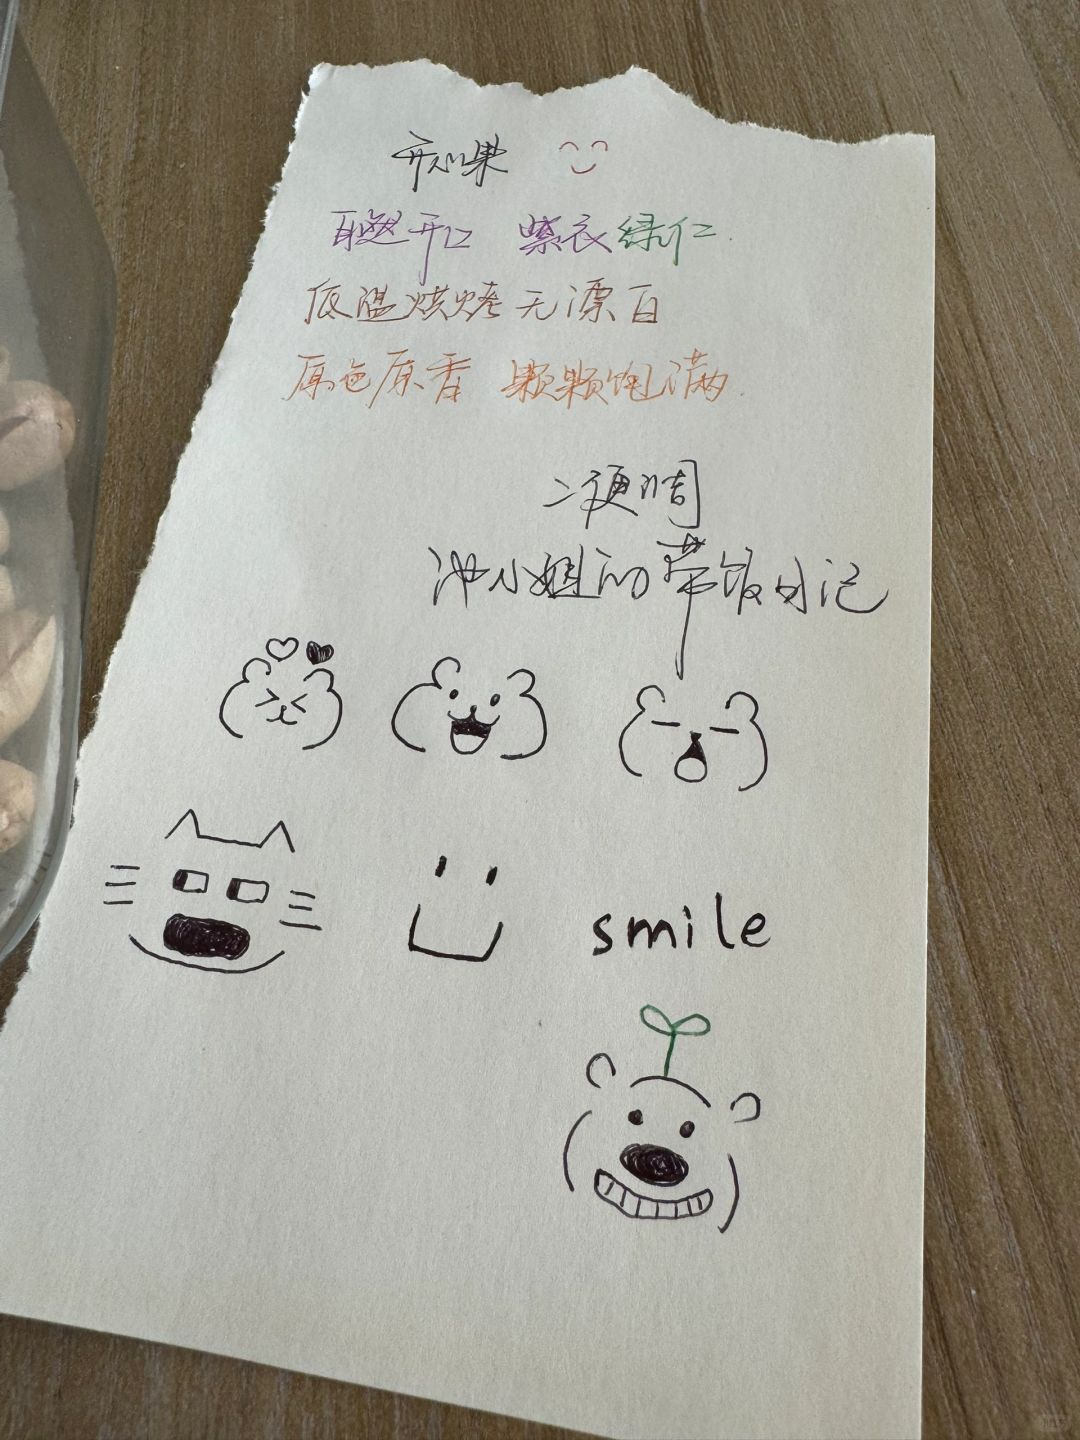 开心果
自然开口 紫衣绿仁.
低温烘烤 无漂白
原色原香 颗颗饱满.
池小姐的带饭日记
smile